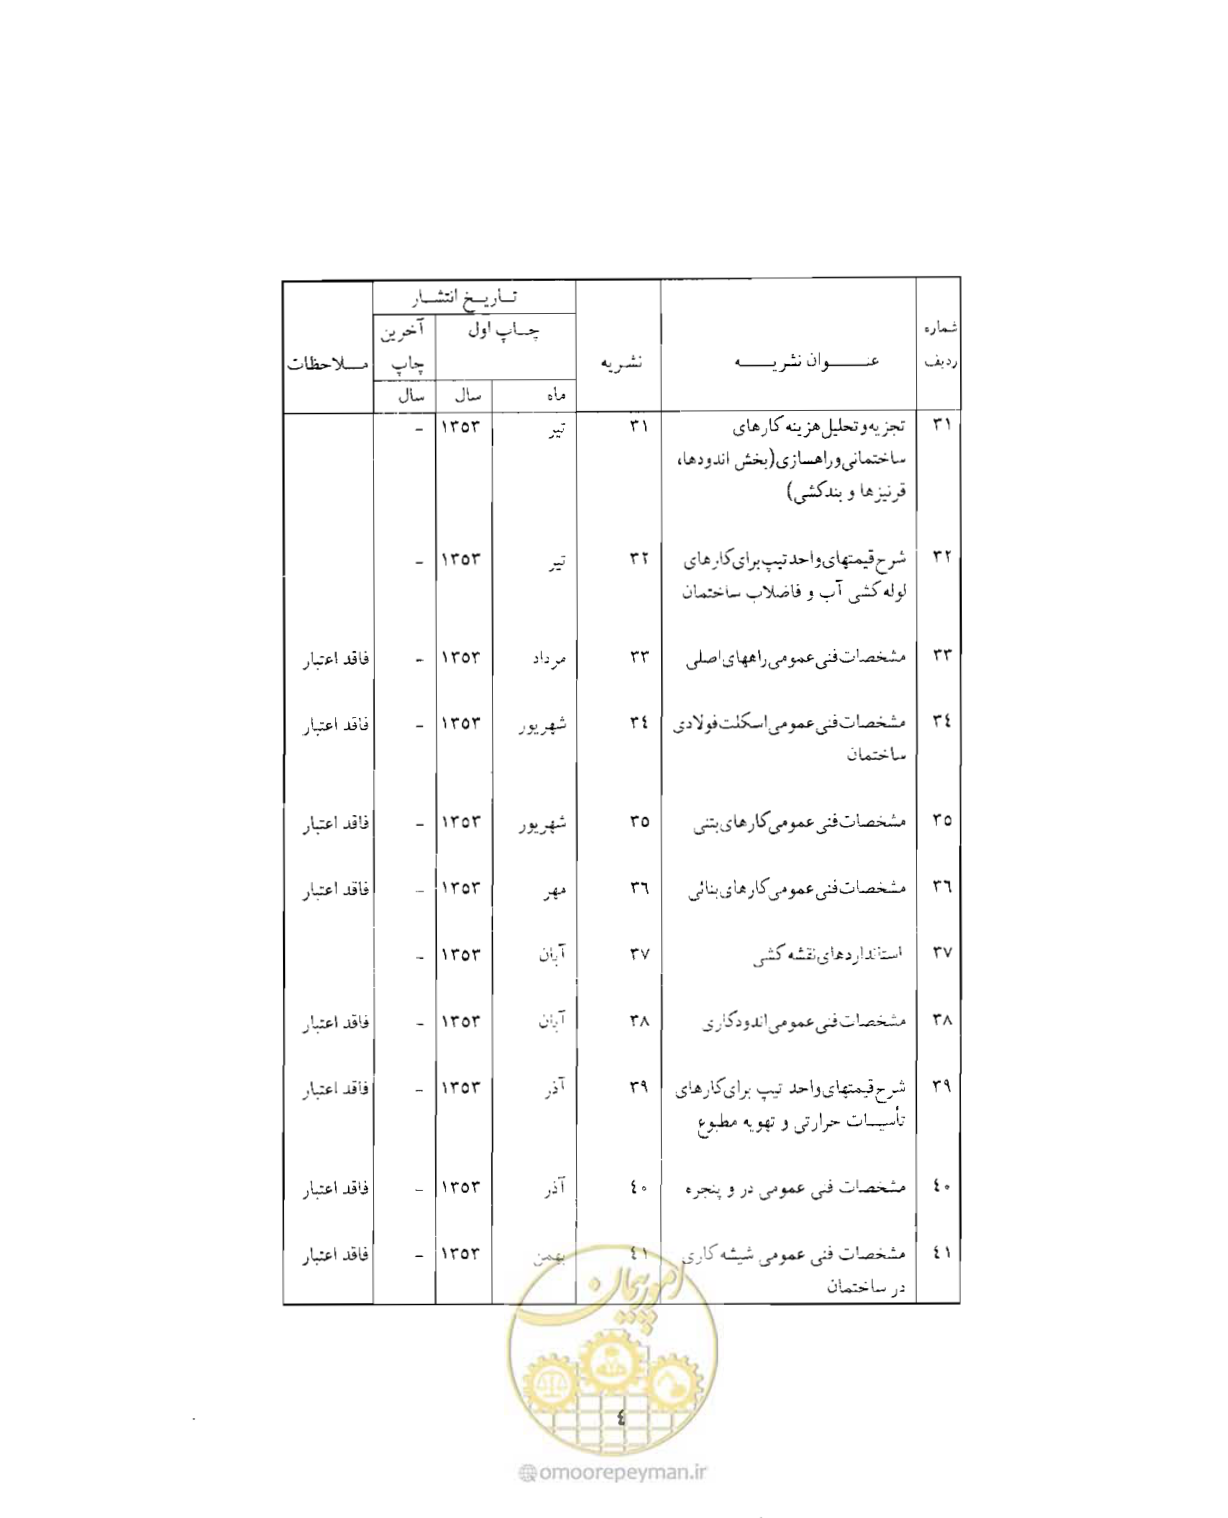 شماره ردیف | عنـــوان نشریـــه | نشریه | تـاریـخ انتشـار | مـلاحظات
چـاپ اول | آخرین چاپ
ماه | سال | سال
۳۱ | تجزیه و تحلیل هزینه کارهای | ۳۱ | تیر | ۱۳۵۳ | –
ساختمانی و راهسازی (بخش اندودها،
قرنیزها و بندکشی)
۳۲ | شرح قیمتهای واحد تیپ برای کارهای | ۳۲ | تیر | ۱۳۵۳ | –
لوله کشی آب و فاضلاب ساختمان
۳۳ | مشخصات فنی عمومی راههای اصلی | ۳۳ | مرداد | ۱۳۵۳ | – | فاقد اعتبار
۳٤ | مشخصات فنی عمومی اسکلت فولادی | ۳٤ | شهریور | ۱۳۵۳ | – | فاقد اعتبار
ساختمان
۳۵ | مشخصات فنی عمومی کارهای بتنی | ۳۵ | شهریور | ۱۳۵۳ | – | فاقد اعتبار
۳٦ | مشخصات فنی عمومی کارهای بنائی | ۳٦ | مهر | ۱۳۵۳ | – | فاقد اعتبار
۳۷ | استانداردهای نقشه کشی | ۳۷ | آبان | ۱۳۵۳ | –
۳۸ | مشخصات فنی عمومی اندودکاری | ۳۸ | آبان | ۱۳۵۳ | – | فاقد اعتبار
۳۹ | شرح قیمتهای واحد تیپ برای کارهای | ۳۹ | آذر | ۱۳۵۳ | – | فاقد اعتبار
تأسیسات حرارتی و تهویه مطبوع
٤۰ | مشخصات فنی عمومی در و پنجره | ٤۰ | آذر | ۱۳۵۳ | – | فاقد اعتبار
٤۱ | مشخصات فنی عمومی شیشه کاری | ٤۱ | بهمن | ۱۳۵۳ | – | فاقد اعتبار
در ساختمان
امور پیمان
٤
omoorepeyman.ir